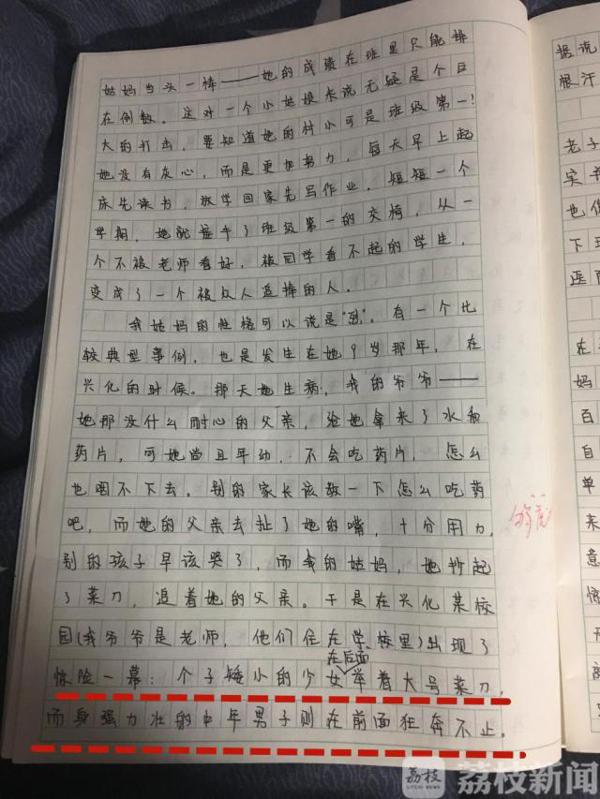 姑妈当头一棒——她的成绩在班里只能排
在倒数。这对一个小姑娘来说无疑是个巨
大的打击，要知道她的村小可是班级第一!
她没有灰心，而是更加努力，每天早上起
床先读书，放学回家先写作业，短短一个
学期，她就坐了班级第一的交椅，从一
个不被老师看好，被同学看不起的学生，
变成了一个被众人追捧的人。
我姑妈的性格可以说是"烈"。有一个比
较典型事例，也是发生在她9岁那年，在
兴化的时候。那天她生病，我的爷爷——
她那没什么耐心的父亲，给她拿来了水和
药片，可她尚且年幼，不会吃药片，怎么
也咽不下去。别的家长该教一下怎么吃药
吧，而她的父亲去扯了她的嘴，十分用力，
别的孩子早该哭了，而我的姑妈，她抄起
了菜刀，追着她的父亲。于是在兴化某校
园(我爷爷是老师，他们住在学校里)出现了
惊险一幕：个子矮小的少女在后面举着大号菜刀，
而身强力壮的中年男子则在前面狂奔不止。
据说
根汗
老子
实
也
下
医
在
妈
百
自
单
来
意
开
荔枝
荔枝新闻